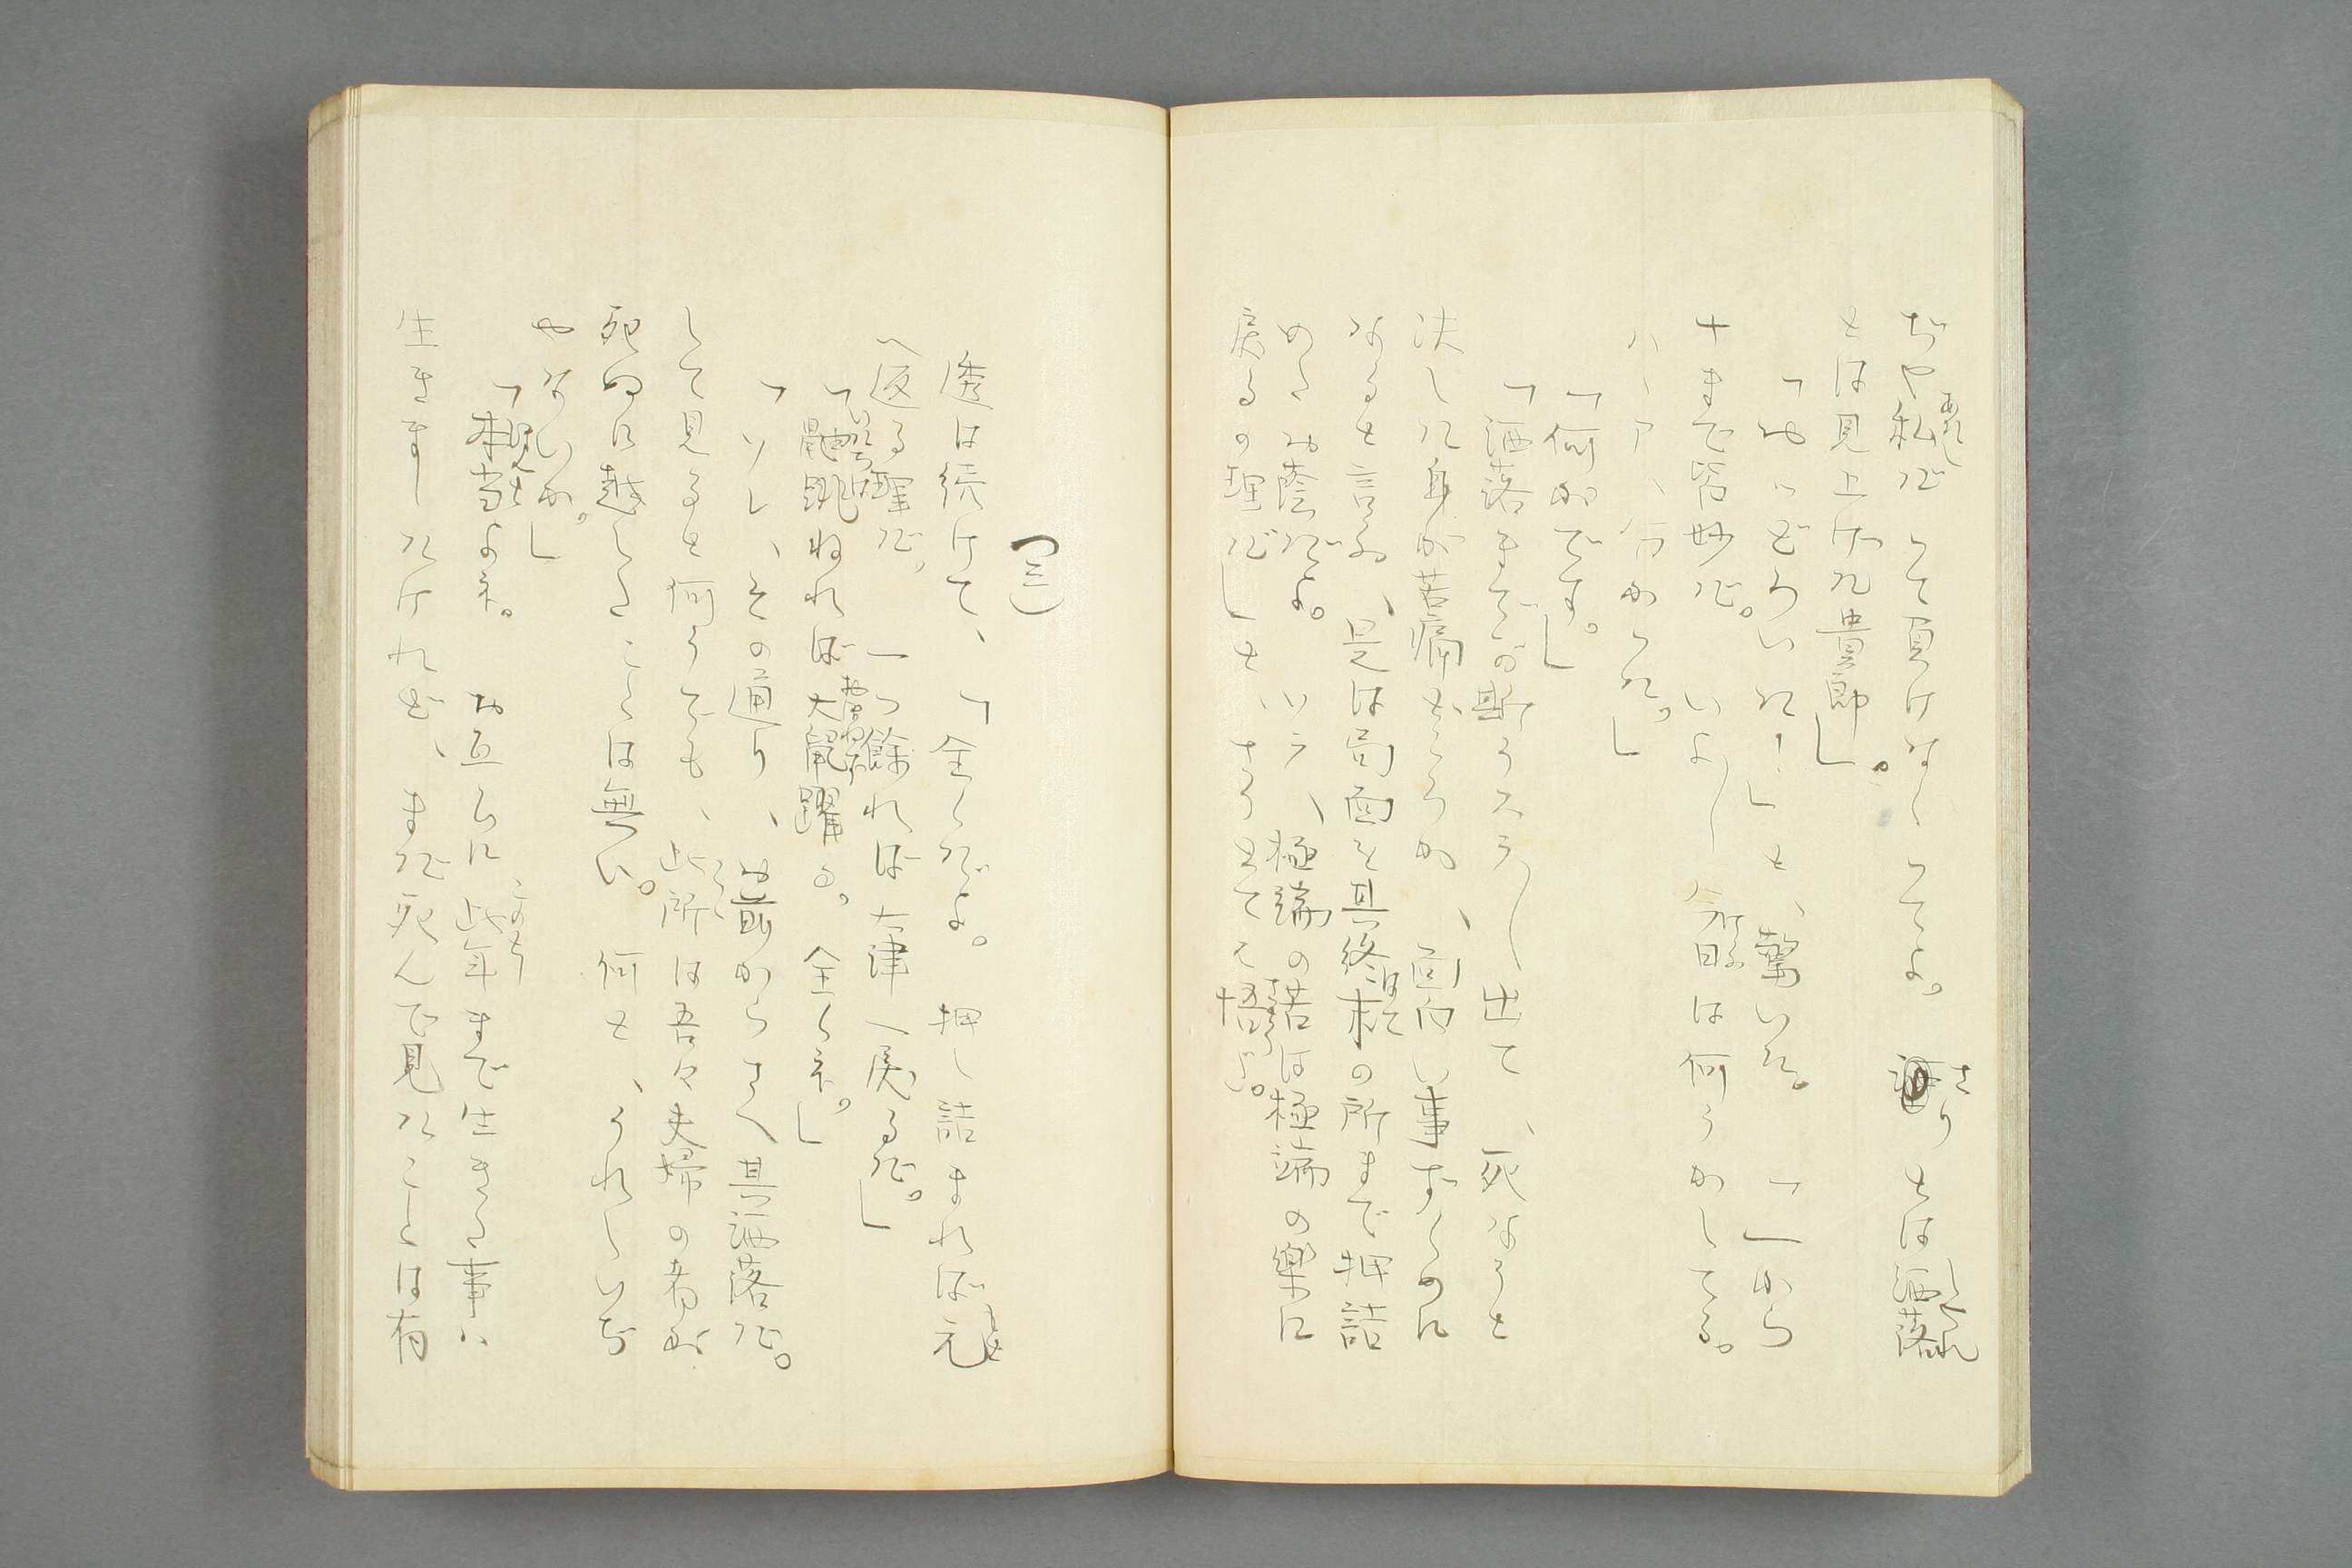 ぢや私だつて負けなくつてよ。さうとは洒落
とは見上げた貴郎」。
「やつどろいた！」と、驚いた。「一から
十まで皆妙だ。いよ〳〵今日は何うかしてる。
ハヽア、分かつた。」
「何がです。」
「洒落までが斯うスラ〳〵出て、死なうと
決した身が苦痛どころか、面白い事ずくめに
なると言ふ、是は局面を其終極の所まで押詰
めたお蔭だよ。ツマリ、極端の苦は極端の樂に
戻るの理だ」とサウとて大悟い。
（三）
透は続けて、「全くだよ。押し詰まれば元
へ返る理だ、一つ餘れば大津へ戻るだ。」
「鼬跳ねれば大鼠躍る。全くネ。」
「ソレ、その通り、お前からさへ其洒落だ。
して見ると何うても、此所は吾々夫婦の者が
死ぬに越したことは無い。何と、うれしいぢ
やないか。」
「本当よネ。お互ひに此年まで生きた事ハ
生きましたけれど、まだ死んで見たことは有